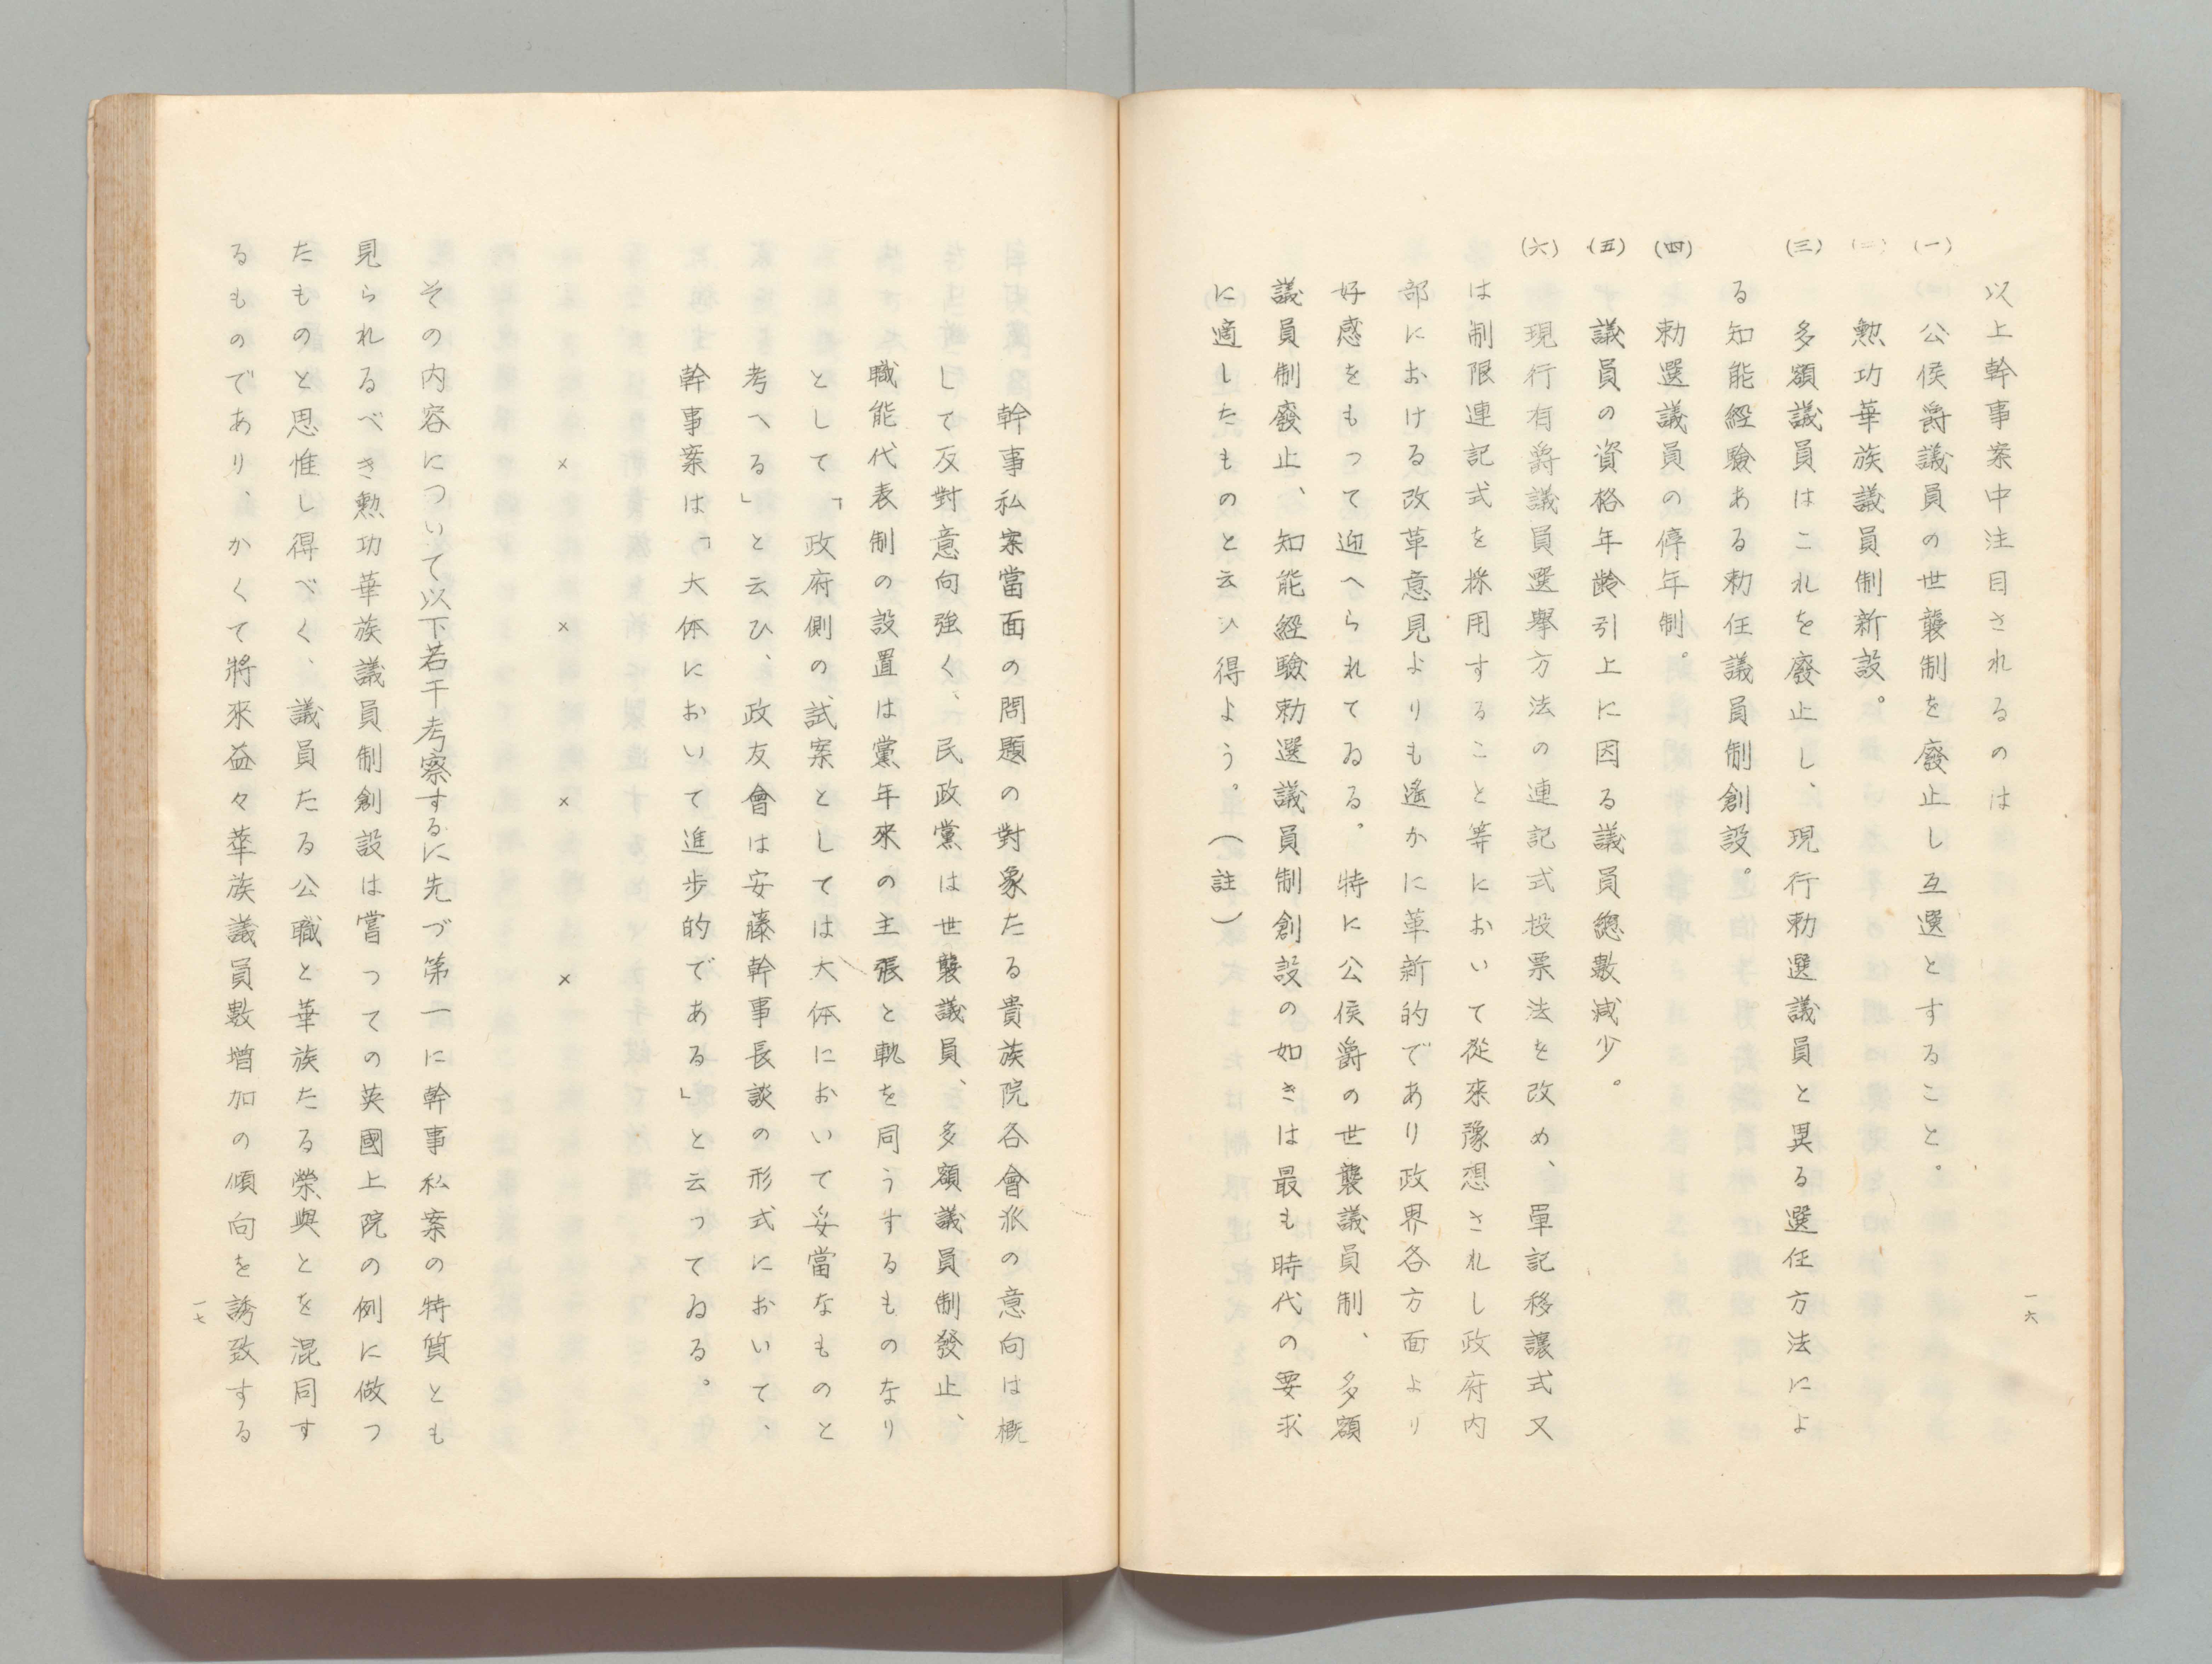 以上幹事案中注目されるのは
(一) 公侯爵議員の世襲制を廢止し互選とすること。
(二) 勲功華族議員制新設。
(三) 多額議員はこれを廢止し、現行勅選議員と異る選任方法によ
る知能経驗ある勅任議員制創設。
(四) 勅選議員の停年制。
(五) 議員の資格年齢引上に因る議員總數減少。
(六) 現行有爵議員選擧方法の連記式投票法を改め、單記移讓式又
は制限連記式を採用すること等において從來豫想されし政府内
部における改革意見よりも遙かに革新的であり政界各方面より
好感をもって迎へられてゐる。特に公侯爵の世襲議員制、多額
議員制廢止、知能経驗勅選議員制創設の如きは最も時代の要求
に適したものと云ひ得よう。(註)
一六
幹事私案當面の問題の對象たる貴族院各會派の意向は概
して反對意向強く、民政黨は世襲議員、多額議員制發止、
職能代表制の設置は黨年來の主張と軌を同うするものなり
として「政府側の試案としては大体において妥當なものと
考へる」と云ひ、政友會は安藤幹事長談の形式において、
幹事案は「大体において進歩的である」と云ってゐる。
× × × ×
その内容について以下若干考察するに先づ第一に幹事私案の特質とも
見られるべき勲功華族議員制創設は嘗っての英國上院の例に倣つ
たものと思惟し得べく、議員たる公職と華族たる榮與とを混同す
るものであり、かくて將來益々華族議員數増加の傾向を誘致する
一七